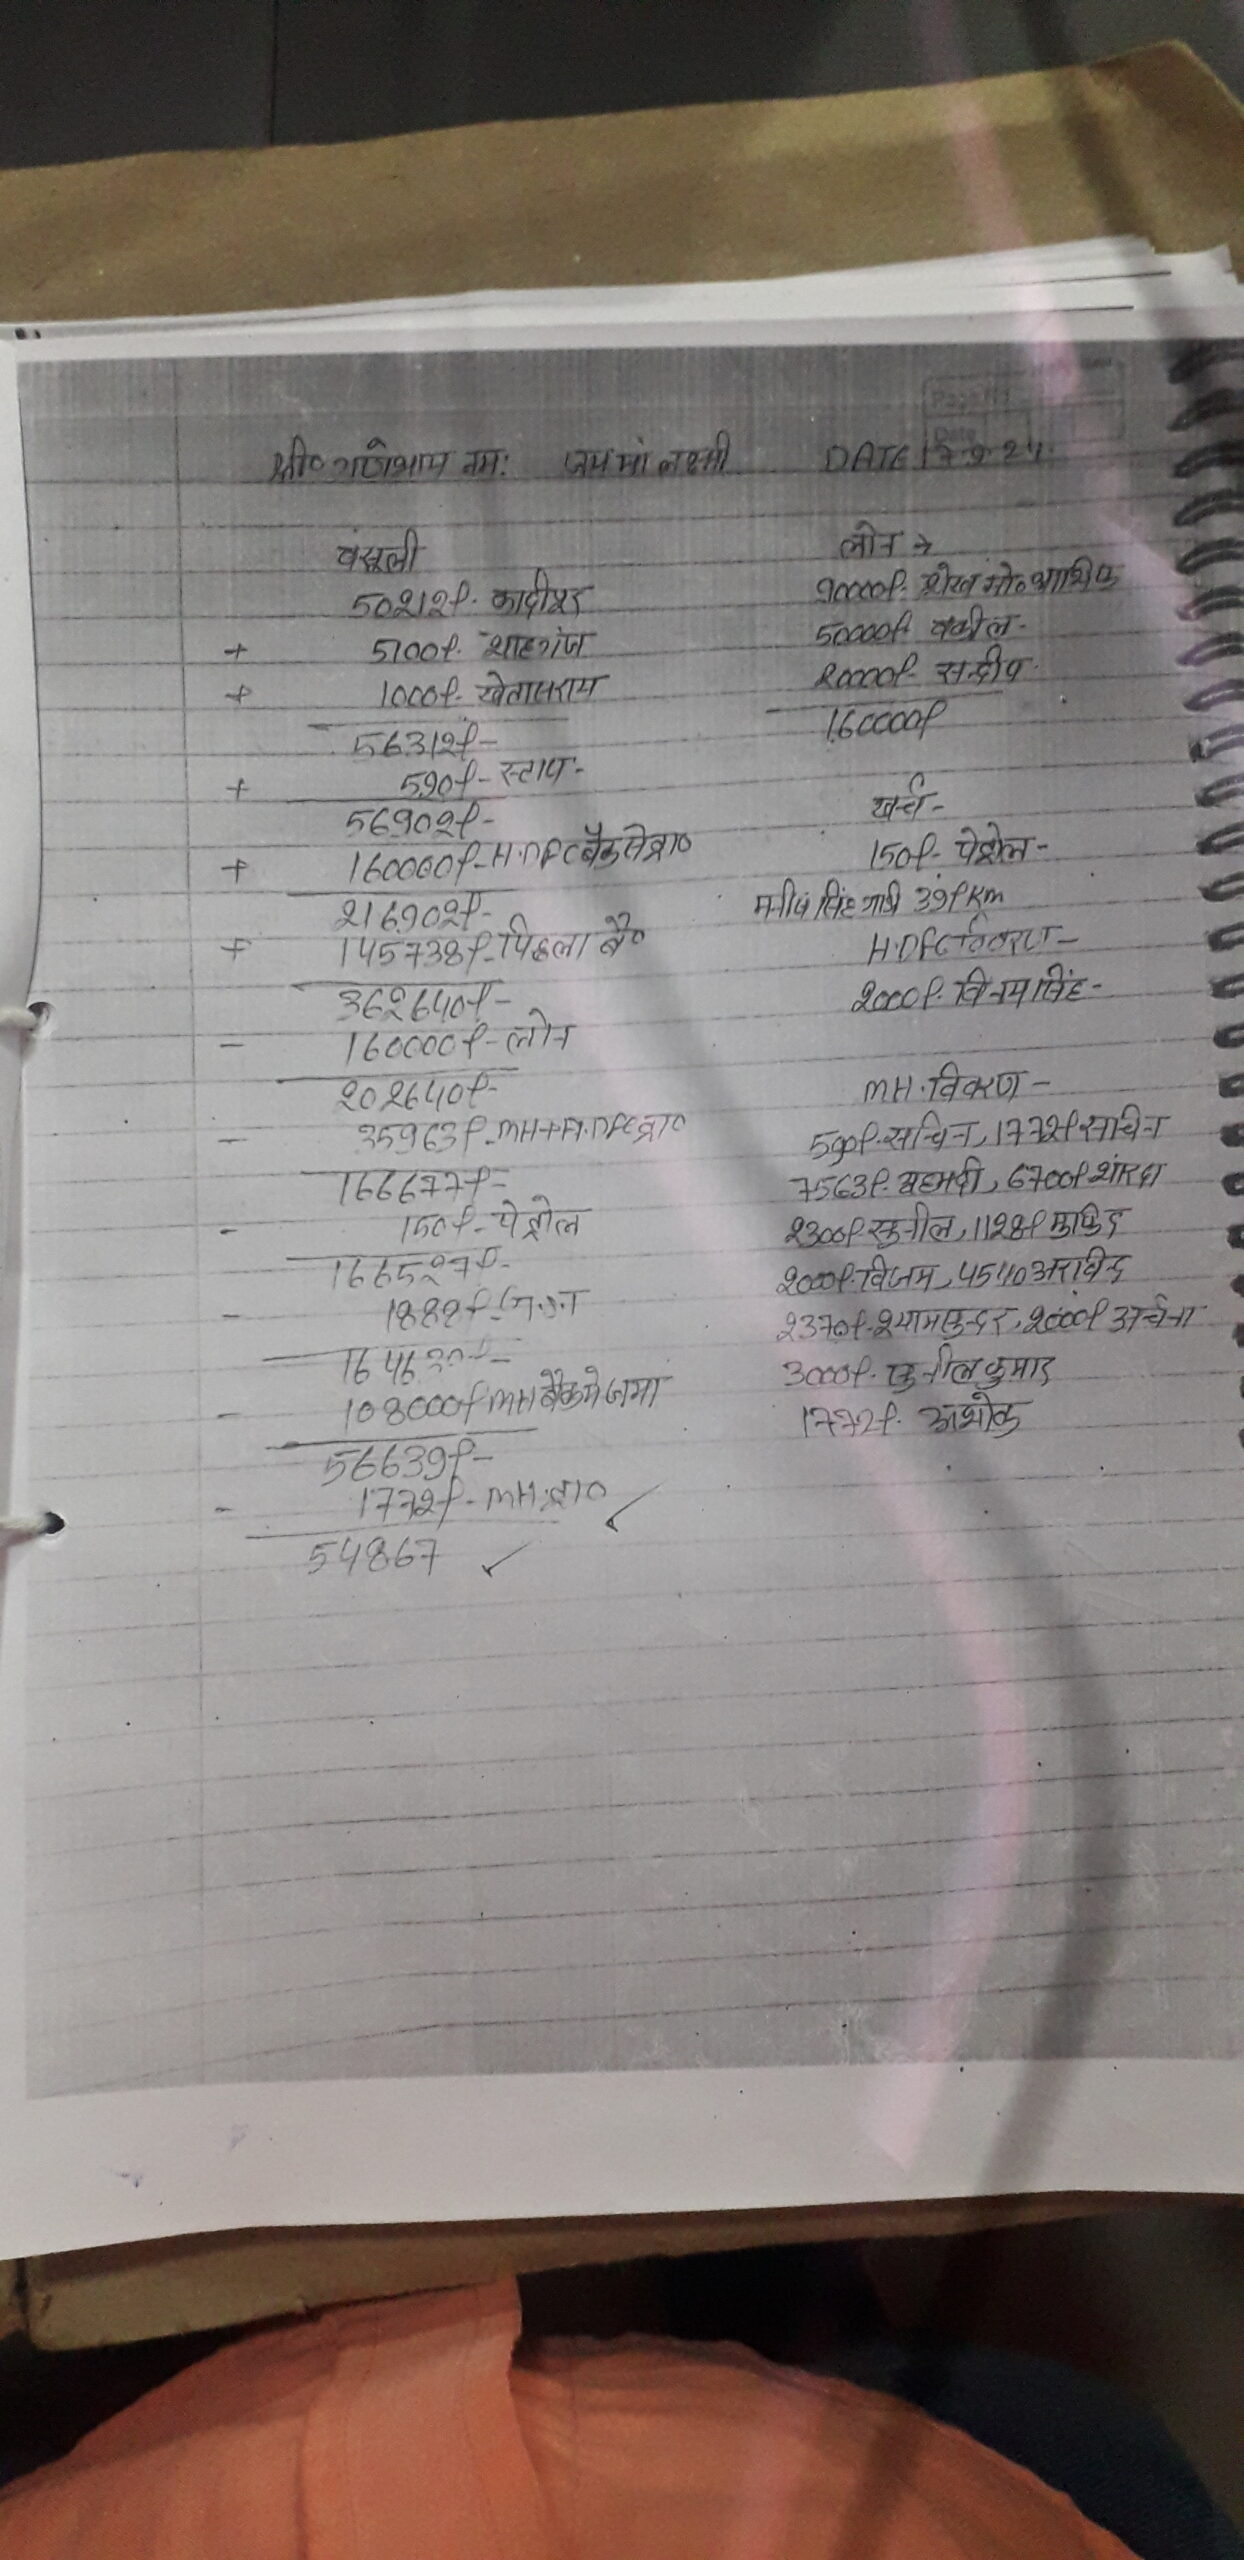 श्री० गणेशाय नमः जय मां लक्ष्मी DATE 17.9.24.
वसूली
50212₹. कादीपुर
+ 5100₹. शाहगंज
+ 1000₹- खेतासराय
56312₹-
+ 590₹- स्टाप-
56902₹-
+ 160000₹- H.DFC बैंक से प्रा०
216902₹-
+ 145738₹- पिछला बै०
362640₹-
- 160000₹- लोन
202640₹-
- 35963₹- MH+H.DFC प्रा०
166677₹-
- 150₹- पेट्रोल
166527₹-
- 1888₹-
- 108000₹ MH बैंक मे जमा
56639₹-
- 1772₹- MH.प्रा०
54867
लोन →
90000₹. शेख मो० आशिक
50000₹ वकील-
20000₹- सन्दीप.
160000₹
खर्च-
150₹- पेट्रोल-
सिंह गाड़ी 39 Km
H.DFC विवरण-
2000₹. विनय सिंह-
MH.विवरण-
590₹. सचिन, 1772₹ सचिन
7563₹. अहमदी, 6700₹ शारदा
2300₹- सुनील, 1128₹
2000₹. विजय, 4540 अरविन्द
2370₹- श्यामसुन्दर, 2000₹ अर्चना
3000₹. सुनील कुमार
1772₹. अशोक